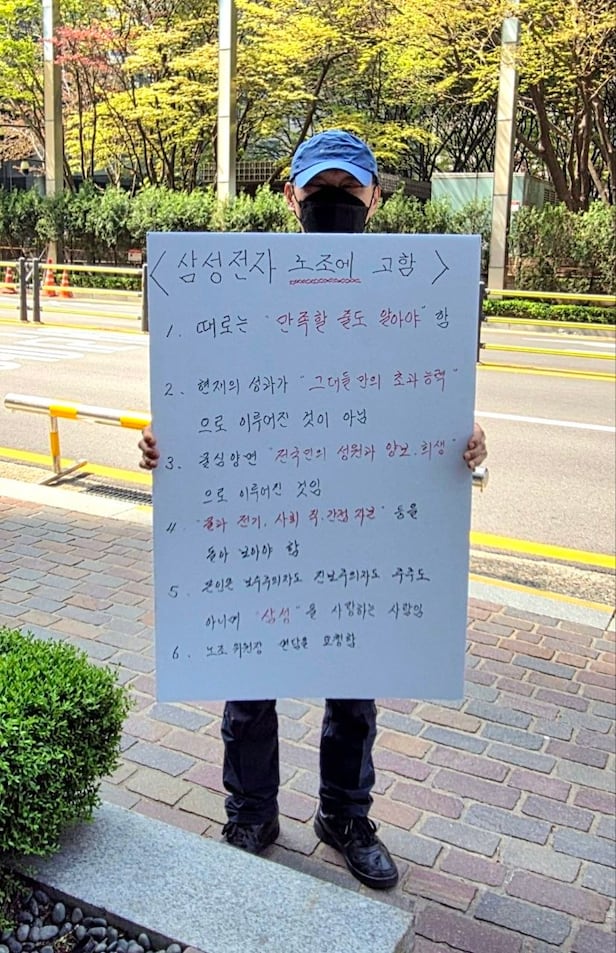 <삼성전자 노조에 고함>
1. 때로는 "만족할 줄도 알아야" 함
2. 현재의 성과가 "그대들만의 초과능력"
으로 이루어진 것이 아님
3. 물심양면 "전국민의 성원과 양보.희생"
으로 이루어진 것임
4. 전기, 사회 직.간접자본" 등을
돌아 보아야 함
5. 본인은 보수주의자도 진보주의자도 주주도
아니며 "삼성"을 사랑하는 사람임
6. 노조위원장 면담을 요청함